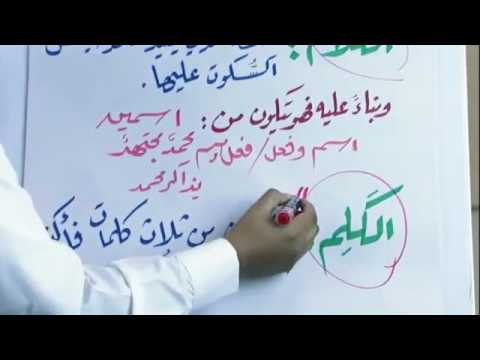 الكلام:
السكوت عليها.
وبناءً عليه فهو يتكون من: اسمين
اسم وفعل / فعل واسم محمدٌ مجتهدٌ
يذاكر محمد
الكَلِم من ثلاث كلمات فأكثر